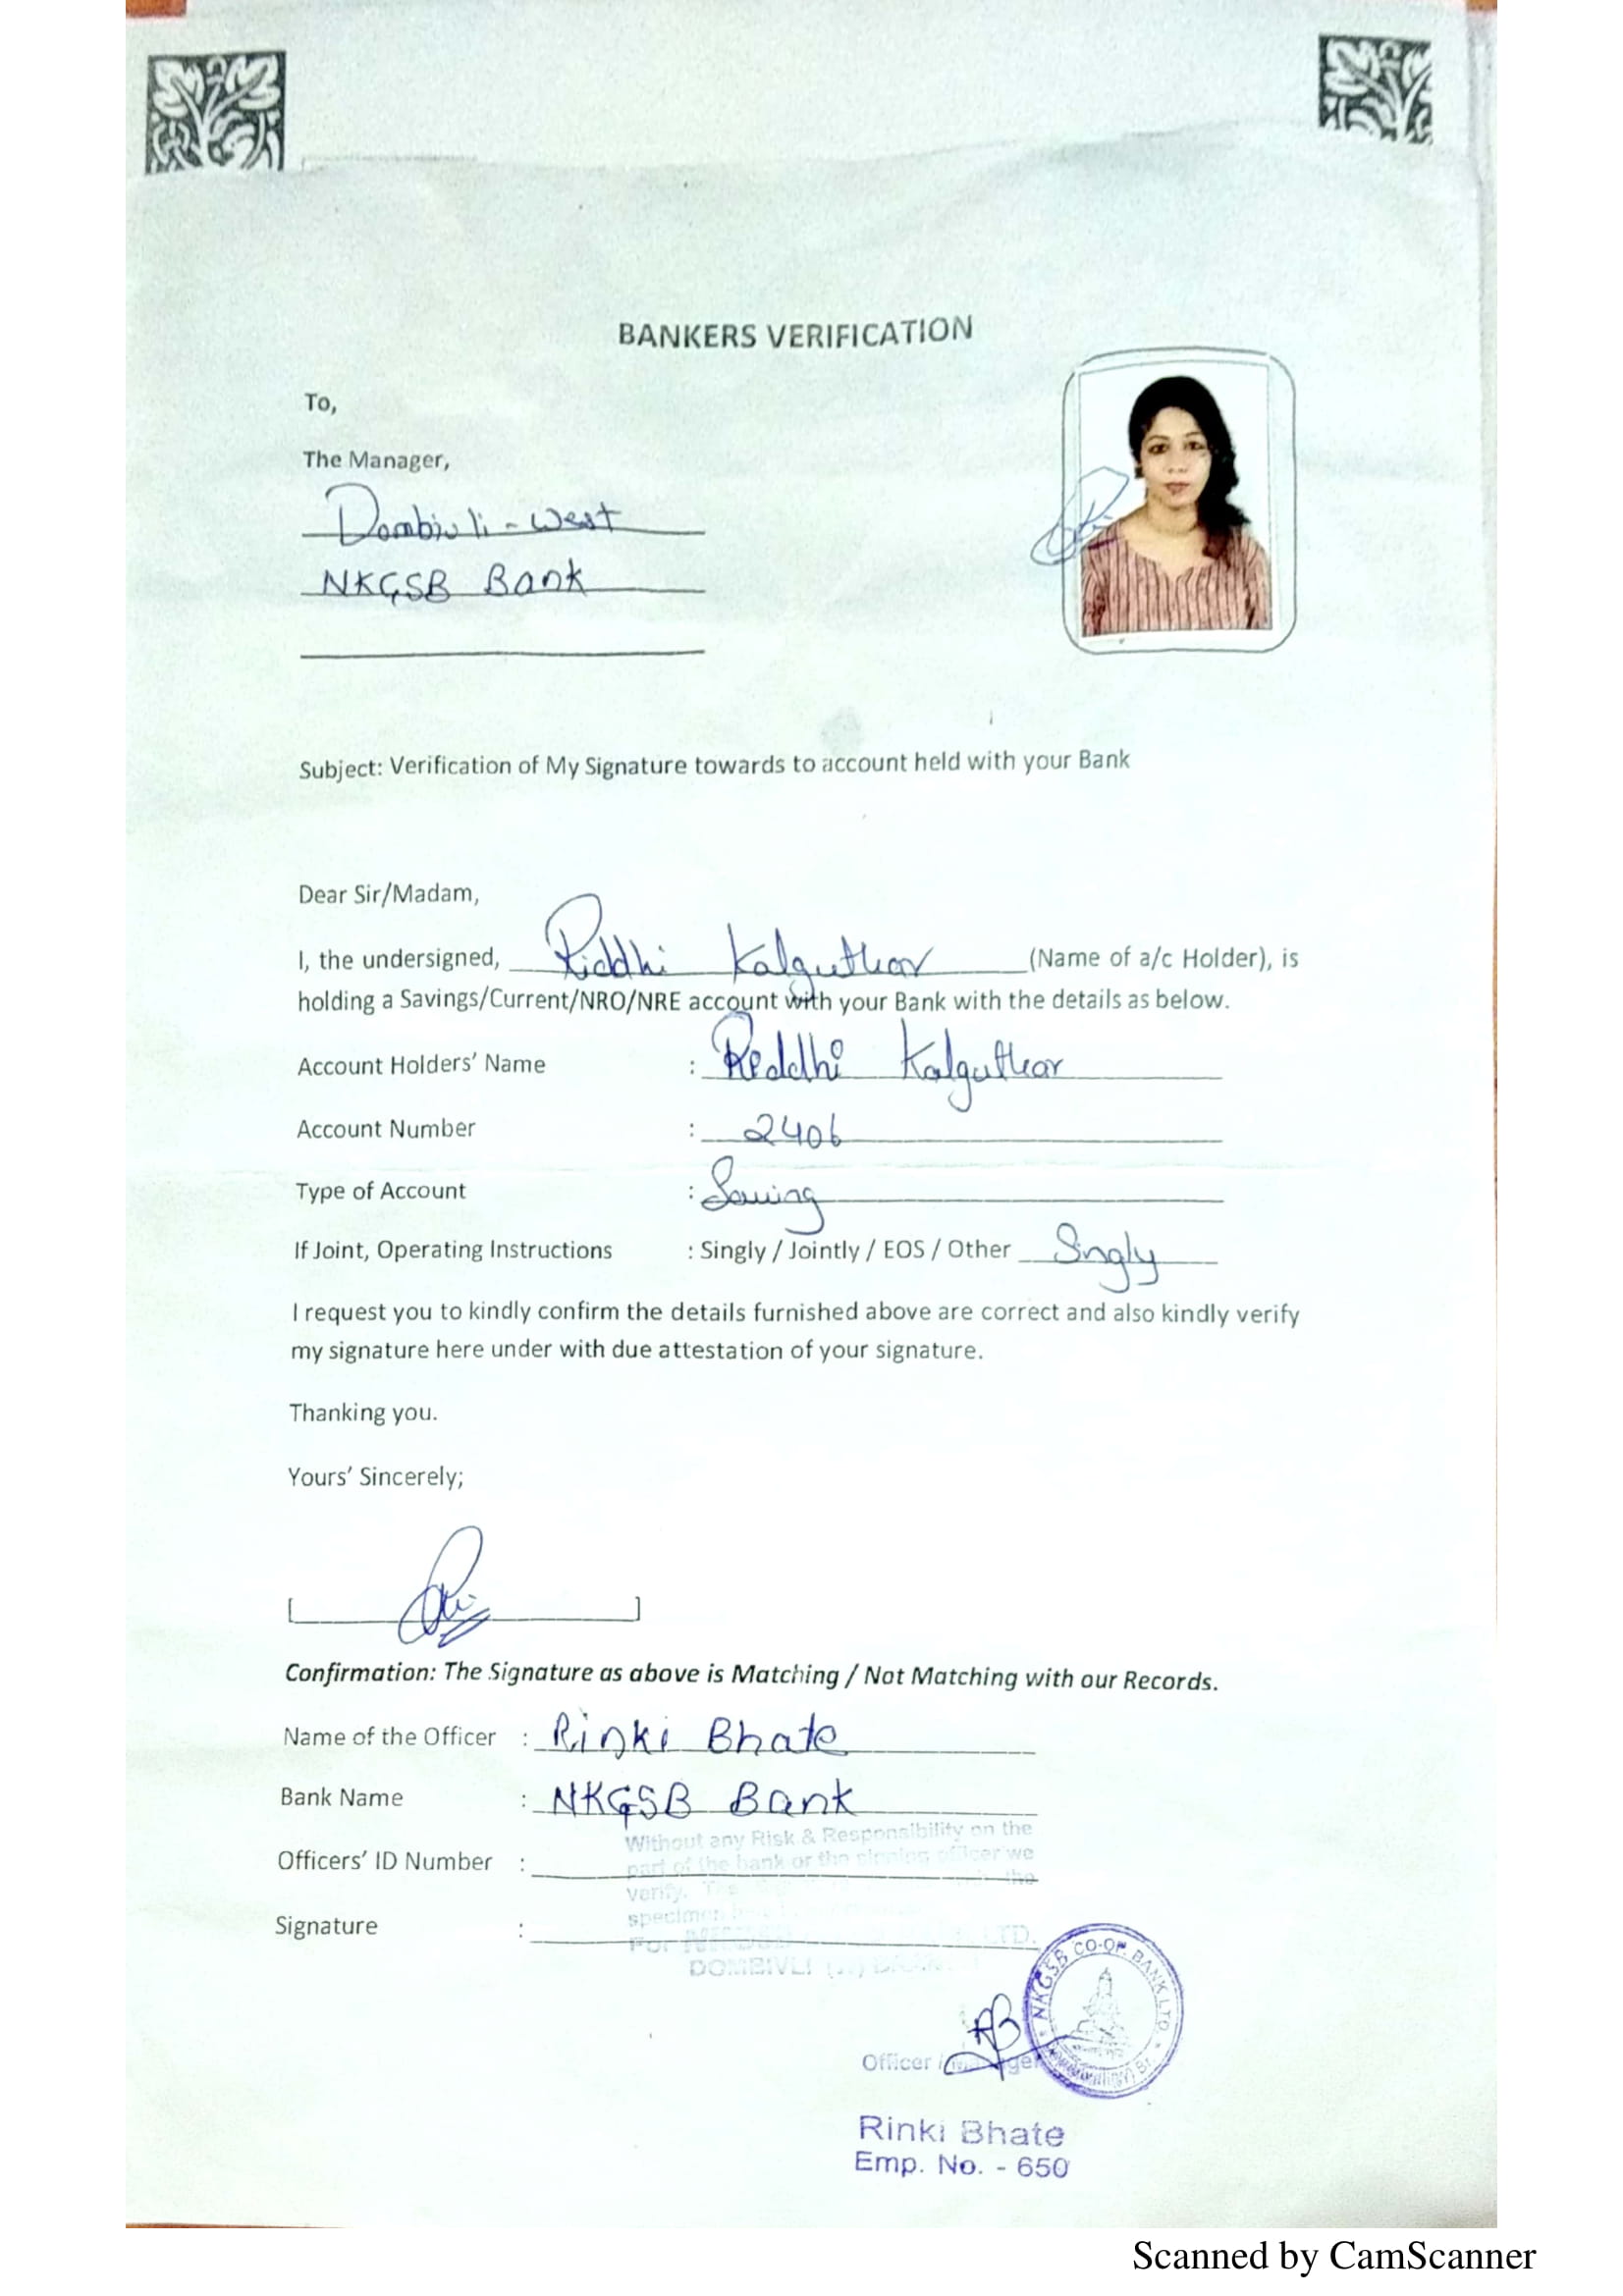 BANKERS VERIFICATION
To,
The Manager,
Dombivli - West
NKGSB Bank
Subject: Verification of My Signature towards to account held with your Bank
Dear Sir/Madam,
I, the undersigned, Riddhi Kalguthar (Name of a/c Holder), is
holding a Savings/Current/NRO/NRE account with your Bank with the details as below.
Account Holders' Name : Riddhi Kalguthar
Account Number : 2406
Type of Account : Saving
If Joint, Operating Instructions : Singly / Jointly / EOS / Other Singly
I request you to kindly confirm the details furnished above are correct and also kindly verify
my signature here under with due attestation of your signature.
Thanking you.
Yours' Sincerely;
Confirmation: The Signature as above is Matching / Not Matching with our Records.
Name of the Officer : Rinki Bhate
Bank Name : NKGSB Bank
Without any Risk & Responsibility on the
Officers' ID Number : part of the bank or the signing officer we
verify. The
specimen
Signature : For LTD.
DOMBIVLI
NKGSB CO-OP. BANK LTD.
Officer
Rinki Bhate
Emp. No. - 650
Scanned by CamScanner